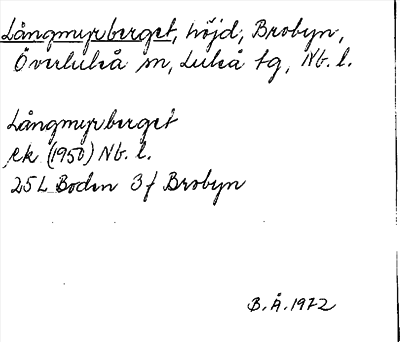 Långmyrberget, höjd, Brobyn,
Överluleå sn, Luleå tg, Nb. l.
Långmyrberget
ek (1950) Nb. l.
25L Boden 3f Brobyn
B. Å. 1972